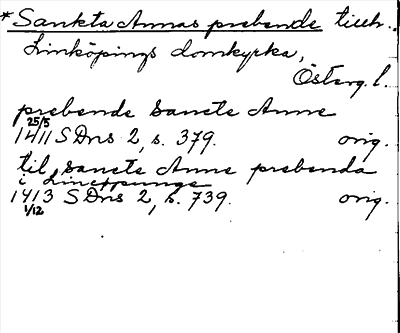 *Sankta Annas prebende tillh.
Linköpings domkyrka,
Österg. l.
prebende sancte Anne
25/5
1411 SDns 2, s. 379. orig.
til sancte Anne prebenda
i Lincøpunge
1413 SDns 2, s. 739. orig.
1/12